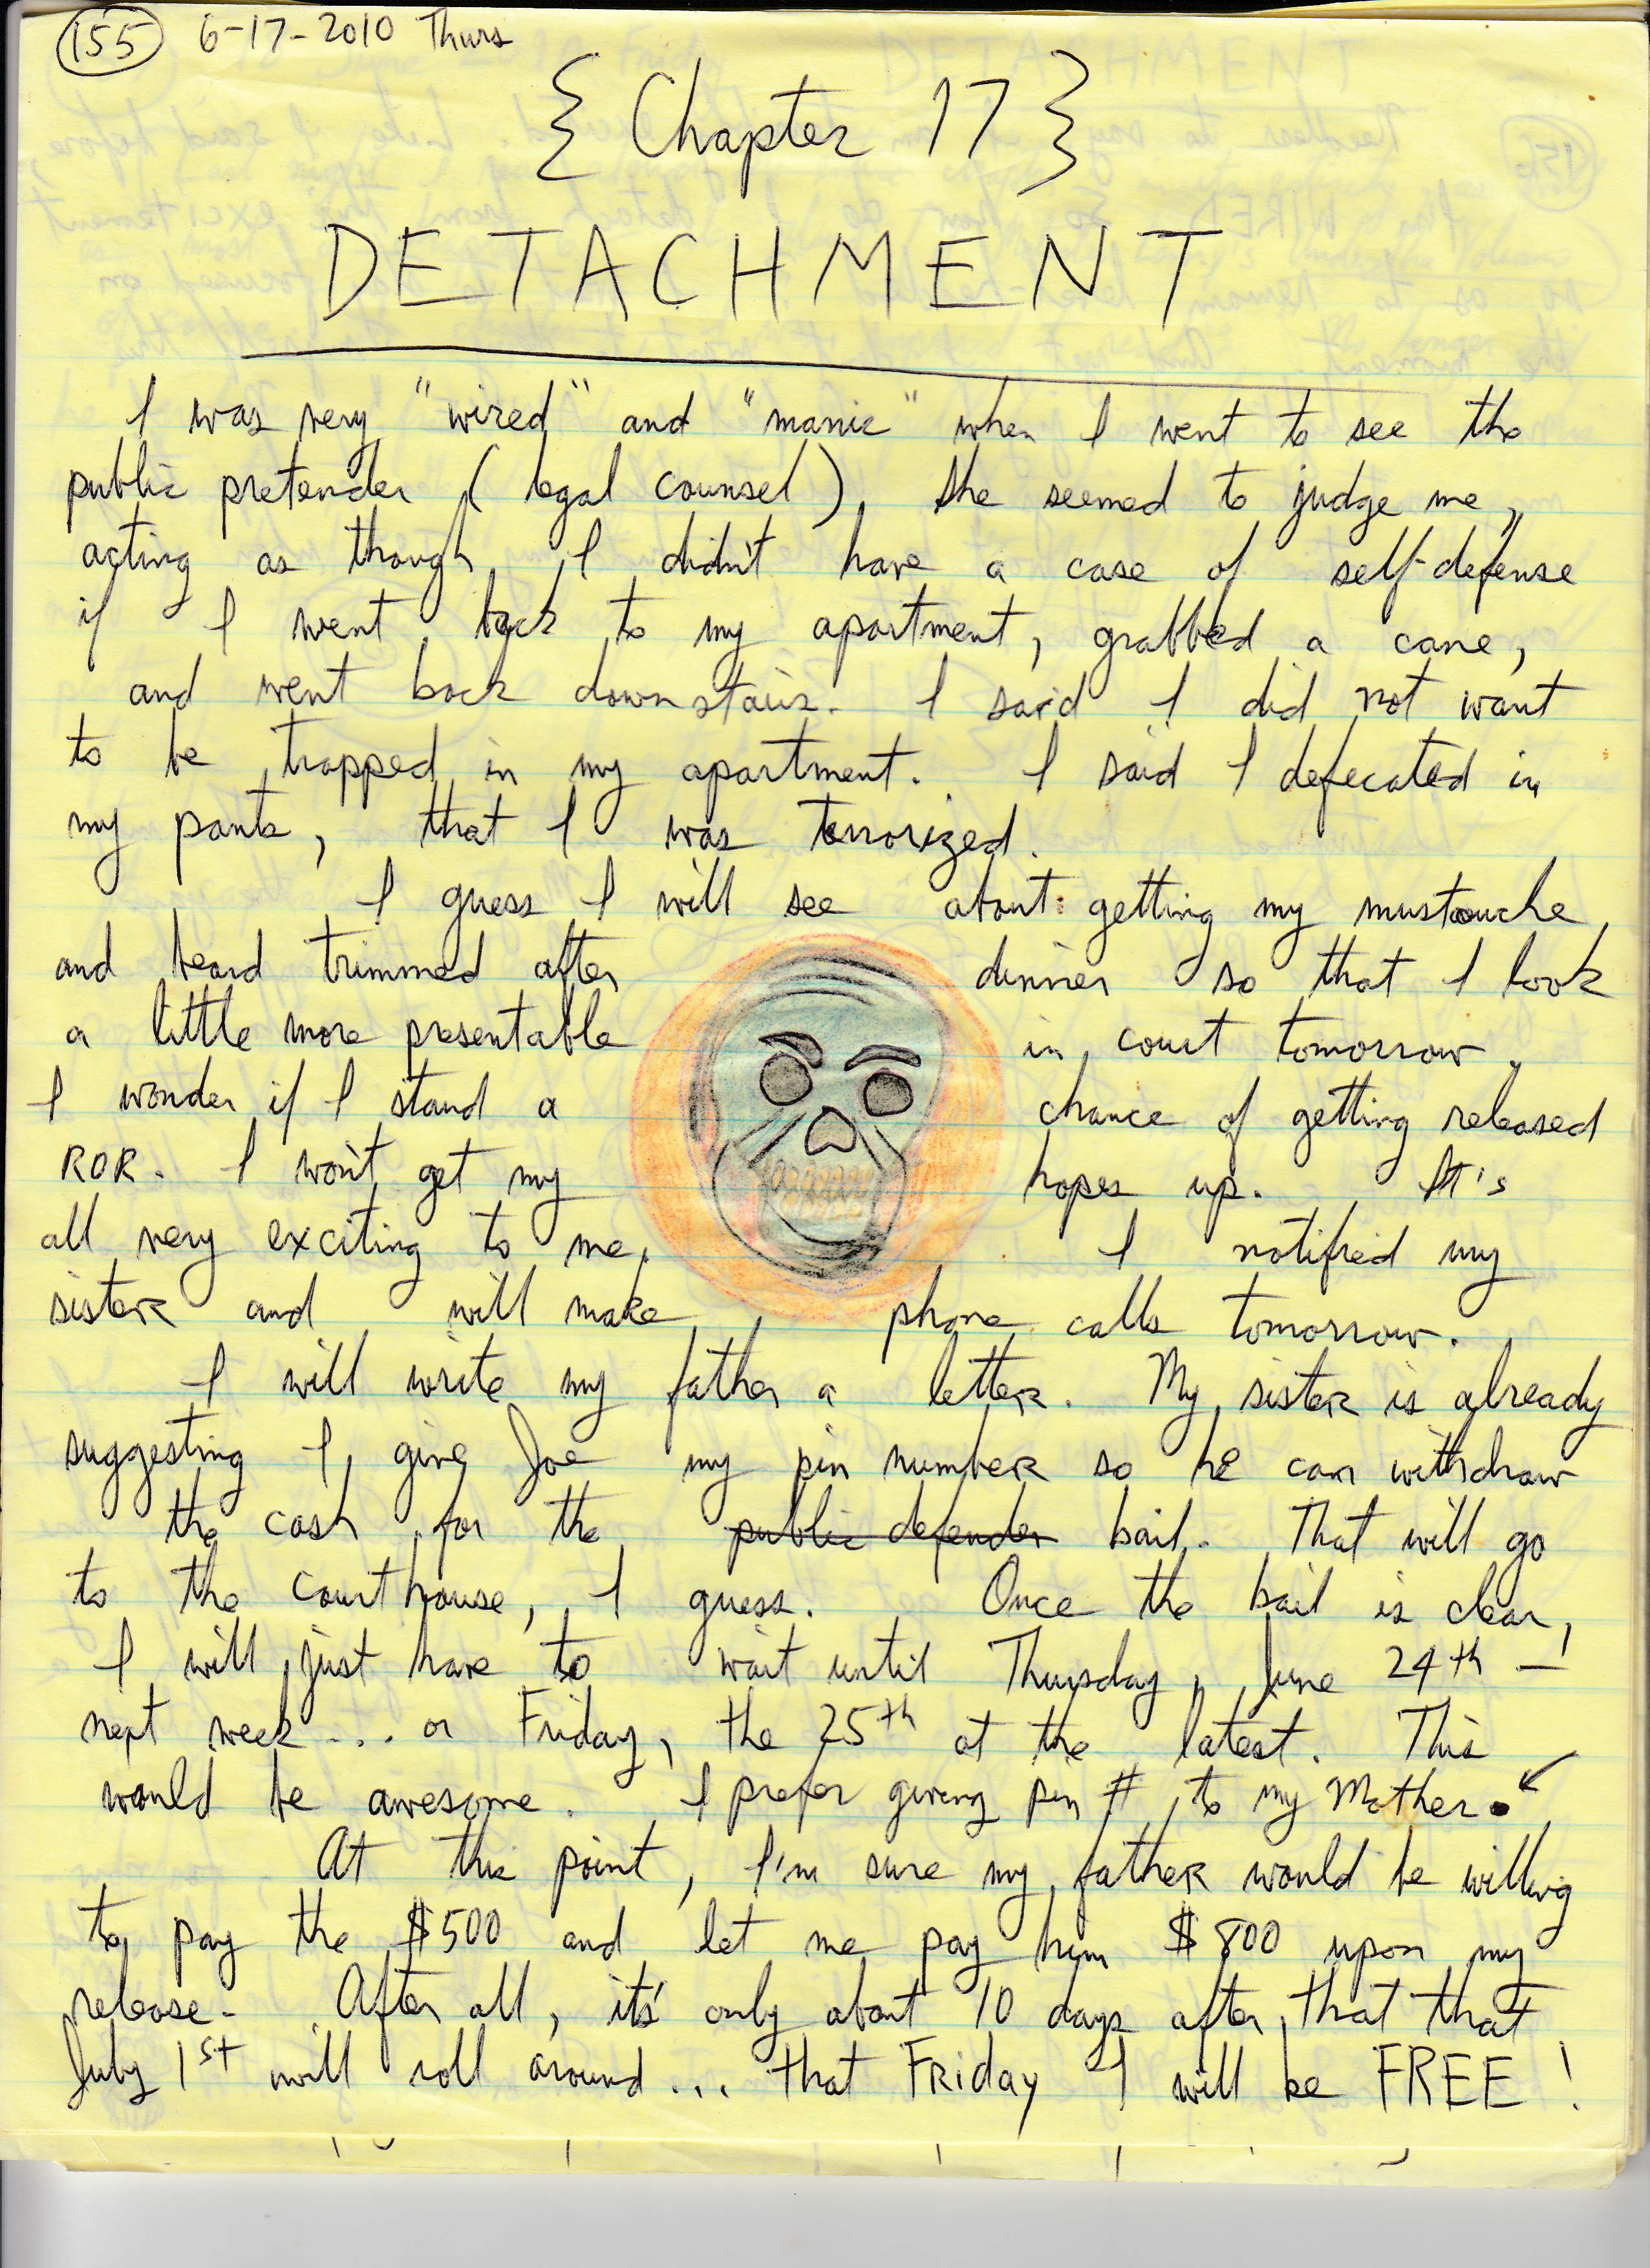 155 6-17-2010 Thurs
{ Chapter 17 }
DETACHMENT
I was very "wired" and "manic" when I went to see the
public pretender (legal counsel). She seemed to judge me,
acting as though I didn't have a case of self-defense
if I went back to my apartment, grabbed a cane,
and went back downstairs. I said I did not want
to be trapped in my apartment. I said I defecated in
my pants, that I was terrorized.
I guess I will see about getting my mustouche
and beard trimmed after dinner so that I look
a little more presentable in court tomorrow.
I wonder if I stand a chance of getting released
ROR. I won't get my hopes up. It's
all very exciting to me. I notified my
sister and will make phone calls tomorrow.
I will write my father a letter. My sister is already
suggesting I give Joe my pin number so he can withdraw
the cash for the public defender bail. That will go
to the courthouse, I guess. Once the bail is clear,
I will just have to wait until Thursday, June 24th —
next week... or Friday, the 25th at the latest. This
would be awesome. I prefer giving pin # to my Mother.
At this point, I'm sure my father would be willing
to pay the $500 and let me pay him $800 upon my
release. After all, it's only about 10 days after that that
July 1st will roll around... that Friday I will be FREE!